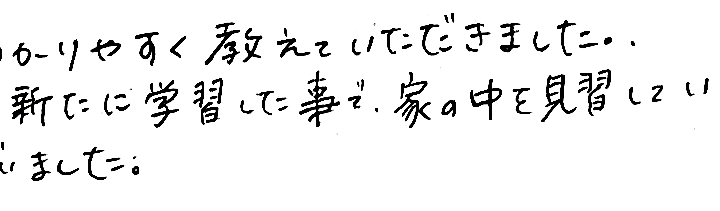 かりやすく教えていただきました。
新たに学習した事で、家の中を見習してい
いました。